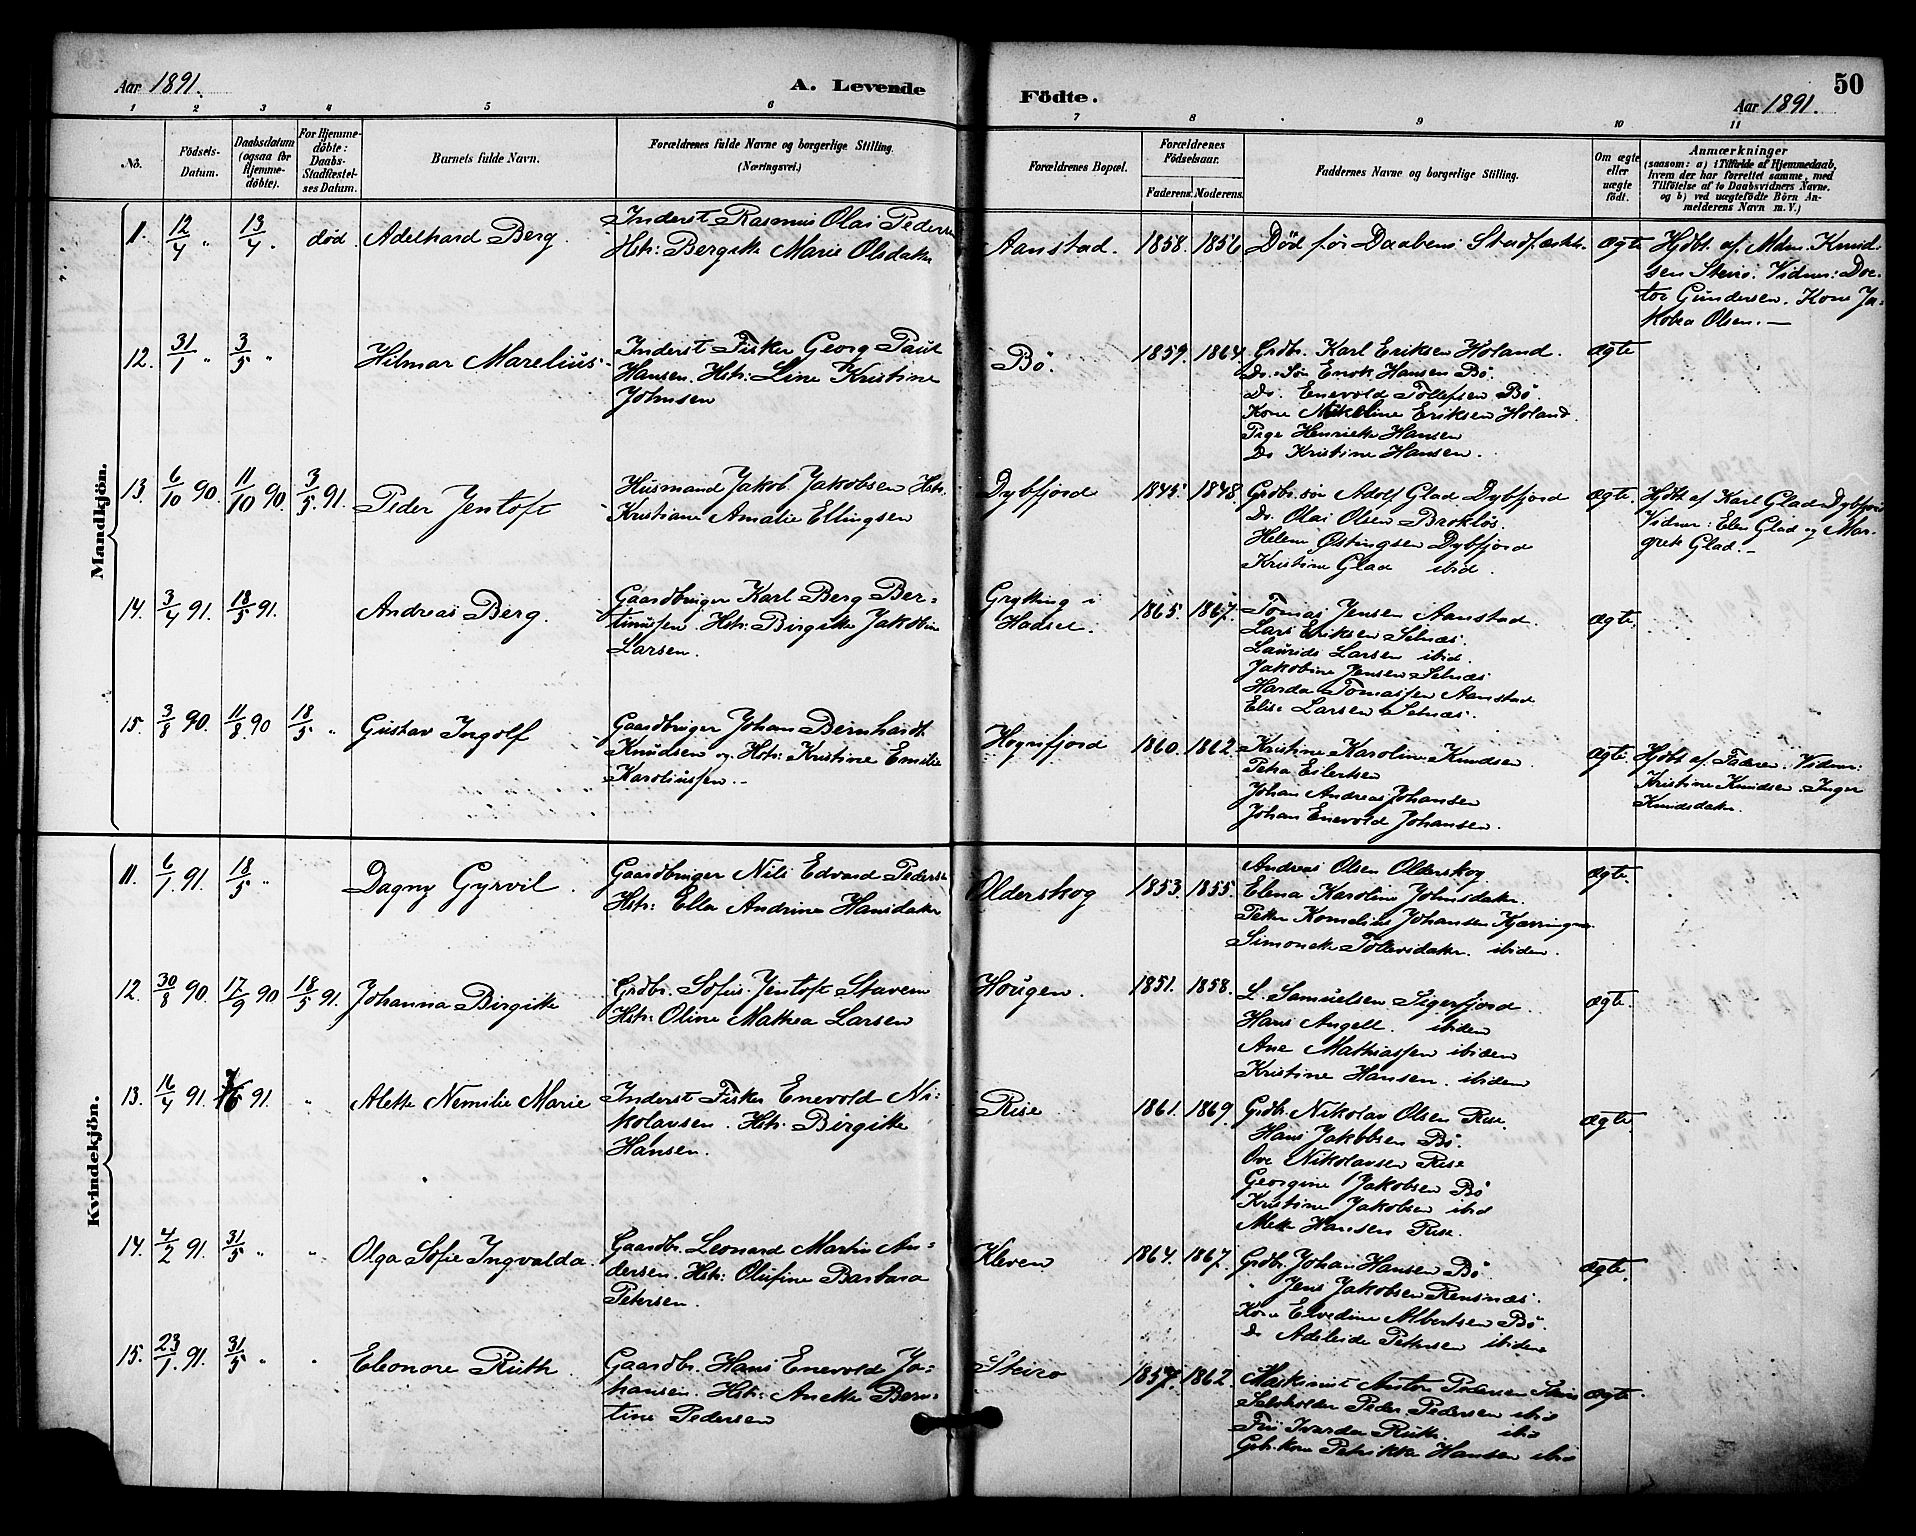 50
Aar 1891.
A. Levende
Födte.
Aar 1891.
1 2 3 4 5 6 7 8 9 10 11
No.
Födsels-
Datum.
Daabsdatum
(ogsaa for
Hjemme-
döbte).
For Hjemme-
döbte:
Daabs-
Stadfæstel-
ses Datum.
Barnets fulde Navn.
Forældrenes fulde Navne og borgerlige Stilling
(Næringsvei).
Forældrenes Bopæl.
Forældrenes
Födselsaar.
Faderens.
Moderens.
Faddernes Navne og borgerlige Stilling.
Om ægte
eller
uægte
födt.
Anmærkninger
(saasom: a) i Tilfælde af Hjemmedaab,
hvem der har forrettet samme, med
Tilföielse af to Daabsvidners Navne.
og b) ved uægtefödte Börn An-
melderens Navn m. V.)
Mandkjön.
11. 12/4 " 13/4 " död Adelhard Berg.
Inderst Rasmus Olai Pedersen
Hst: Bergitte Marie Olsdatter
Aanstad. 1858. 1856
Död för Daabens Stadfæstelse.
ægte
Hjdbt. af Mdm. Knud-
sen Steiro. Vidner: Doc-
tor Gundersen. Kone Ja-
kobea Olsen.—
12. 31/1 " 3/5 " Hilmar Marelius
Inderst Fisker Georg Paul
Hansen. Hst: Line Kristine
Johnsen
Bö. 1859. 1864
Grdbr. Karl Eriksen Holand.
Do. Sön Enok Hansen Bö.
Do. Enevold Tollefsen Bö.
Kone Nikoline Eriksen Holand
Pige Henriette Hansen
Do Kristine Hansen.
ægte
13. 6/10 90. 11/10 90. 3/5 91. Peder Jentoft
Husmand Jakob Jakobsen Hst.
Kristiane Amalie Ellingsen
Dybfjord 1845. 1848.
Grdbr. sön Adolf Glad Dybfjord
Do. Olai Olsen Broklös.
Helene Östingsen Dybfjord
Kristine Glad ibid.
ægte.
Hjdbt af Karl Glad Dybfjord
Vidner: Elen Glad og Mar-
grete Glad.—
14. 3/4 91. 18/5 91. Andreas Berg.
Gaardbruger Karl Berg Ber-
tinusen. Hst: Birgitte Jakobine
Larsen.
Grytting i
Hadsel. 1865. 1867.
Tomas Jensen Aanstad.
Lars Eriksen Selnæs.
Laurids Larsen ibid.
Jakobine Jensen Selnæs
Harda Tomassen Aanstad
Elise Larsen Selnæs.
ægte.
15. 3/8 90. 11/8 90 18/5 " Gustav Ingolf
Gaardbruger Johan Bernhardt
Knudsen og Hst: Kristine Emilie
Karoliussen.—
Hognfjord 1860. 1862.
Kristine Karoline Knudsen.
Petra Eilertsen
Johan Andreas Johansen
Johan Enevold Johansen.
ægte.
Hjdbt af Faderen. Vidner:
Kristine Knudsen. Inger
Knudsdatter.
Kvindekjön.
11. 6/1 91. 18/5 " Dagny Gyrvil.
Gaardbruger Nils Edvard Pedersen
Hst: Ella Andrine Hansdatter
Olderskog 1853. 1855.
Andreas Olsen Olderskog
Elena Karoline Johnsdatter.
Peter Kornelius Johansen Kjærringnes
Simonette Tollevsdatter. ibidem.
ægte.
12. 30/8 90. 17/9 90 18/5 91. Johanna Birgitte
Grdbr. Sofus Jentoft Stavem
Hst: Oline Mathea Larsen
Hougen. 1851. 1858.
L. Samuelsen Sigerfjord.
Hans Angell. ibidem
Ane Mathiassen ibidem
Kristine Hansen. ibidem
ægte.
13. 16/4 91. 91. " Alette Nemilie Marie
Inderst Fisker Enevold Ni-
kolavsen. Hst: Birgitte
Hansen.
Rise 1861. 1869.
Grdbr. Nikolav Olsen Rise.
Hans Jakobsen Bö.
Ove Nikolavsen Rise
Georgine Jakobsen Bö
Kristine Jakobsen ibid
Mette Hansen Rise.
ægte.
14. 4/2 91. 31/5 " " Olga Sofie Ingvalda.
Gaardbr. Leonard Martin An-
dersen. Hst: Olufine Barbara
Petersen.
Kleven 1864. 1867.
Grdbr. Johan Hansen Bö.
" Jens Jakobsen Rensnæs.
Kone Elvedine Albertsen Bö.
Do Adeleide Pettersen ibidem
ægte.
15. 23/1 91. 31/5 " " Eleonore Ruth.
Gaardbr. Hans Enevold Jo-
hansen. Hst: Anette Bern-
tine Pedersen
Steiro 1857. 1862.
Maskinist Anton Pedersen Steiro
Selvholder Peder Pedersen ibid
Frü Ivarda Rütk. ibid
Grbr. kone Petrikke Hansen ibid
ægte.